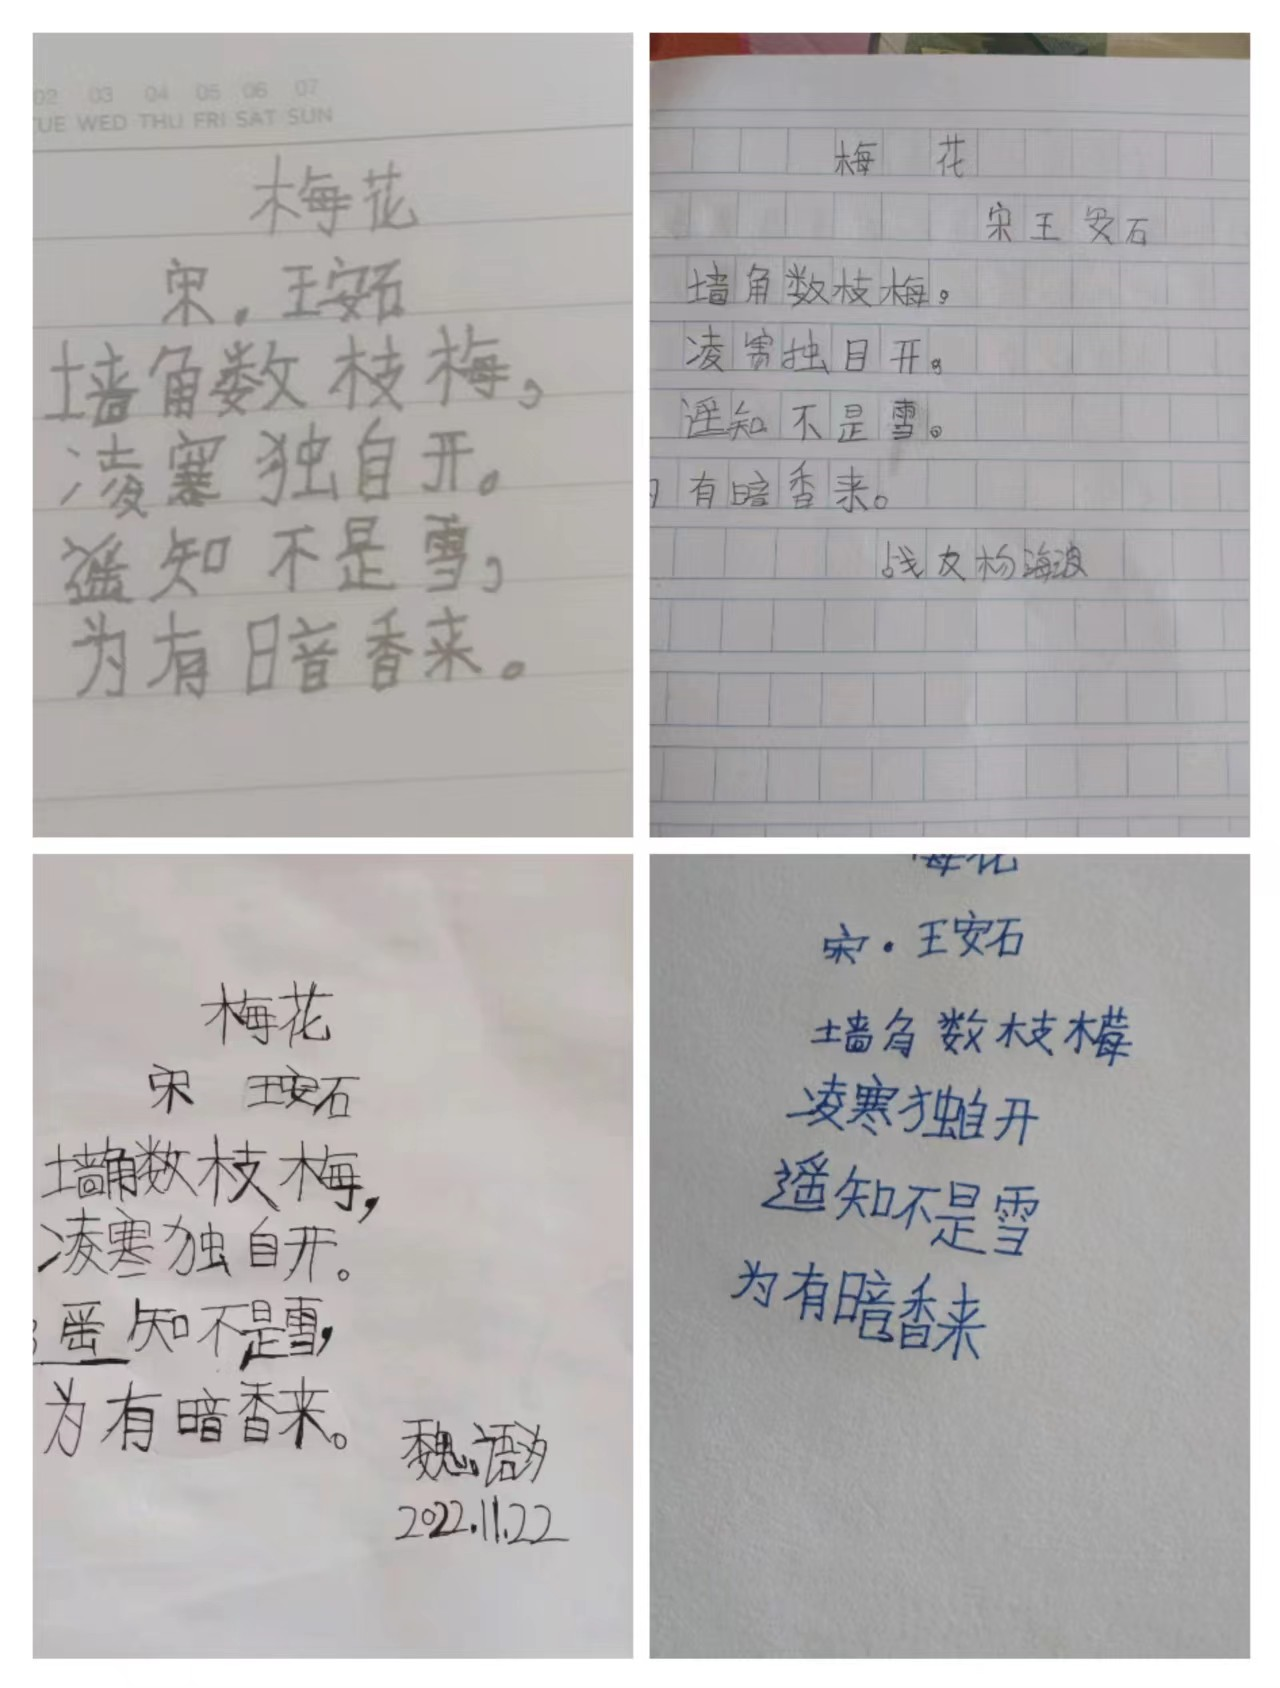 02 03 04 05 06 07
TUE WED THU FRI SAT SUN
梅花
宋.王安石
墙角数枝梅,
凌寒独自开。
遥知不是雪,
为有暗香来。
梅花
宋王安石
墙角数枝梅。
凌寒独自开。
遥知不是雪。
为有暗香来。
战友杨海波
梅花
宋 王安石
墙角数枝梅,
凌寒独自开。
遥知不是雪,
为有暗香来。
魏语
2022.11.22
梅花
宋·王安石
墙角数枝梅
凌寒独自开
遥知不是雪
为有暗香来